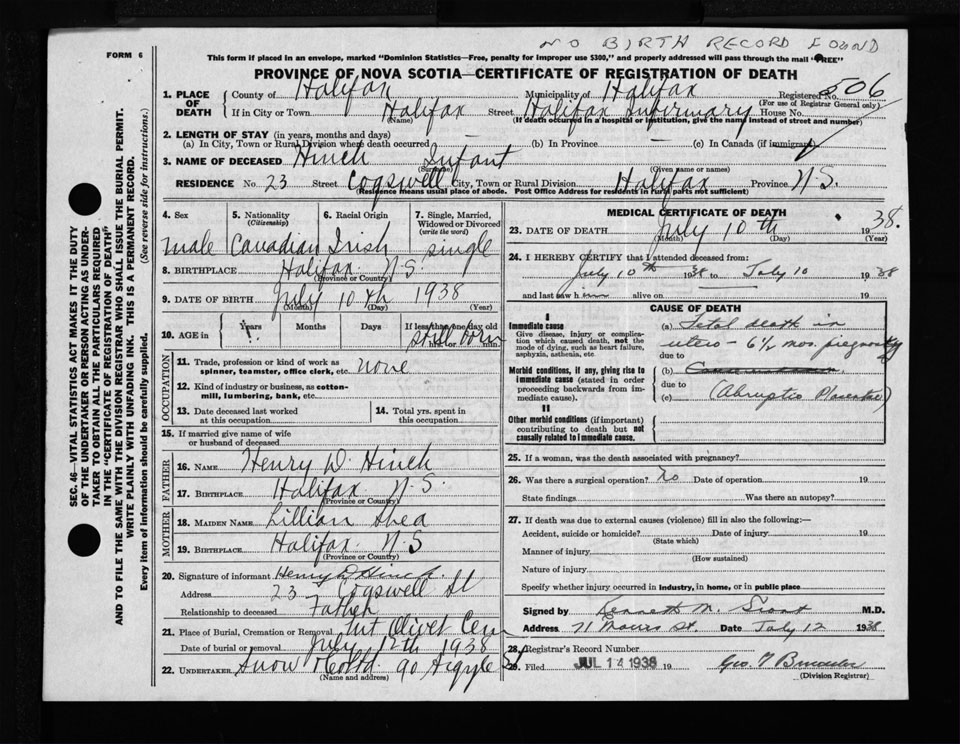 NO BIRTH RECORD FOUND
FORM 6
This form if placed in an envelope, marked "Dominion Statistics—Free, penalty for improper use $300," and properly addressed will pass through the mail "FREE"
PROVINCE OF NOVA SCOTIA—CERTIFICATE OF REGISTRATION OF DEATH
1. PLACE OF DEATH County of Halifax Municipality of Halifax Registered No. 506
(For use of Registrar General only)
If in City or Town Halifax Street Halifax Infirmary House No.
(Name) (If death occurred in a hospital or institution, give the name instead of street and number)
2. LENGTH OF STAY (in years, months and days)
(a) In City, Town or Rural Division where death occurred (b) In Province (c) In Canada (if immigrant)
3. NAME OF DECEASED Hinch Infant
(Surname) (Given name or names)
RESIDENCE No. 23 Street Cogswell City, Town or Rural Division Halifax Province N.S.
(Residence means usual place of abode. Post Office Address for residents in rural parts not sufficient)
4. Sex 5. Nationality (Citizenship) 6. Racial Origin 7. Single, Married, Widowed or Divorced (write the word)
male Canadian Irish single
8. BIRTHPLACE Halifax N.S.
(Province or Country)
9. DATE OF BIRTH July 10th 1938
(Month) (Day) (Year)
10. AGE in Years Months Days If less than one day old
still born
hrs. or min.
OCCUPATION
11. Trade, profession or kind of work as spinner, teamster, office clerk, etc. none
12. Kind of industry or business, as cotton-mill, lumbering, bank, etc.
13. Date deceased last worked at this occupation 14. Total yrs. spent in this occupation
15. If married give name of wife or husband of deceased
FATHER
16. NAME Henry D. Hinch
17. BIRTHPLACE Halifax N.S.
(Province or Country)
MOTHER
18. MAIDEN NAME Lillian Shea
19. BIRTHPLACE Halifax N.S
(Province or Country)
20. Signature of informant Henry D Hinch.
Address 23 Cogswell St
Relationship to deceased Father
21. Place of Burial, Cremation or Removal Mt Olivet Cem
Date of burial or removal July 12th 1938
22. UNDERTAKER Snow & Co Ltd 90 Argyle St
(Name and address)
MEDICAL CERTIFICATE OF DEATH
23. DATE OF DEATH July 10th 1938.
(Month) (Day) (Year)
24. I HEREBY CERTIFY that I attended deceased from:
July 10th 1938 to July 10 1938
and last saw him alive on 19
CAUSE OF DEATH
I
Immediate cause
Give disease, injury or complication which caused death, not the mode of dying, such as heart failure, asphyxia, asthenia, etc.
(a) Fetal death in utero - 6½ mos. pregnancy
due to
Morbid conditions, if any, giving rise to immediate cause (stated in order proceeding backwards from immediate cause).
(b)
due to
(c) (Abruptio Placentae)
II
Other morbid conditions (if important) contributing to death but not causally related to immediate cause.
25. If a woman, was the death associated with pregnancy?
26. Was there a surgical operation? No Date of operation 19
State findings Was there an autopsy?
27. If death was due to external causes (violence) fill in also the following:—
Accident, suicide or homicide? Date of injury 19
(State which)
Manner of injury
(How sustained)
Nature of injury
Specify whether injury occurred in industry, in home, or in public place
Signed by Kenneth M. Grant M.D.
Address 71 Morris St. Date July 12 1938
28. Registrar's Record Number
29. Filed JUL 14 1938 19
(Division Registrar)
SEC. 46—VITAL STATISTICS ACT MAKES IT THE DUTY
OF THE UNDERTAKER OR PERSON ACTING AS UNDER-
TAKER TO OBTAIN ALL THE PARTICULARS REQUIRED
IN THE "CERTIFICATE OF REGISTRATION OF DEATH"
AND TO FILE THE SAME WITH THE DIVISION REGISTRAR WHO SHALL ISSUE THE BURIAL PERMIT.
WRITE PLAINLY WITH UNFADING INK. THIS IS A PERMANENT RECORD.
Every item of information should be carefully supplied. (See reverse side for instructions.)